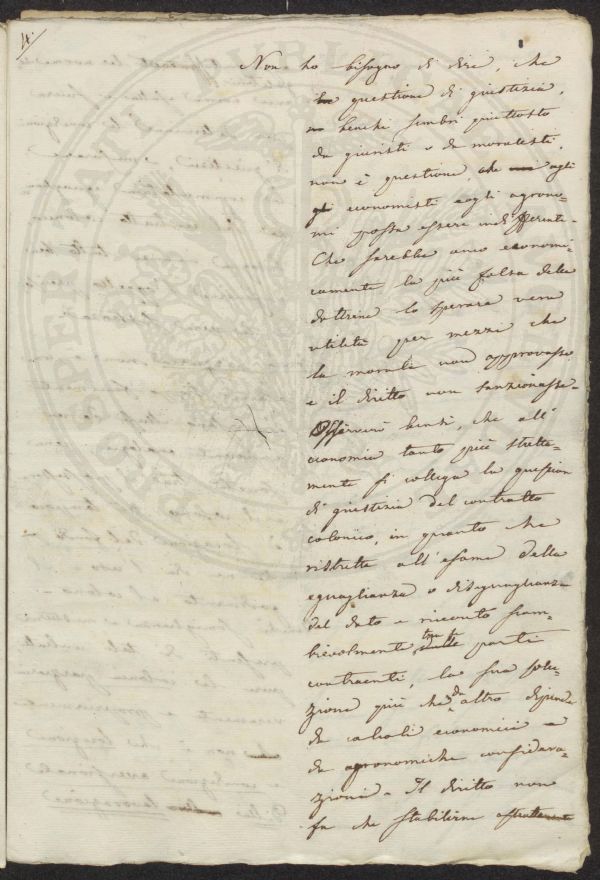 4.
Non ho bisogno di dire, che
la questione di giustizia,
benché sembri piuttosto
da giuristi o da moralisti,
non è questione, che agli
economisti e agli agrono-
mi possa essere indifferente.
Che sarebbe anco economi-
camente la più falsa delle
dottrine lo sperare vera
utilità per mezzi che
la morale non approvasse
e il diritto non sanzionasse.
Osserverò bensì, che all'
economia tanto più stretta-
mente si collega la question
di giustizia del contratto
colonico, in quanto che
ristretta all'esame della
eguaglianza o diseguaglianza
del dato e ricevuto scam-
bievolmente tra le parti
contraenti, la sua solu-
zione più che da altro dipende
da calcoli economici e
da agronomiche considera-
zioni. Il diritto non
fa che stabilirne astrattamente